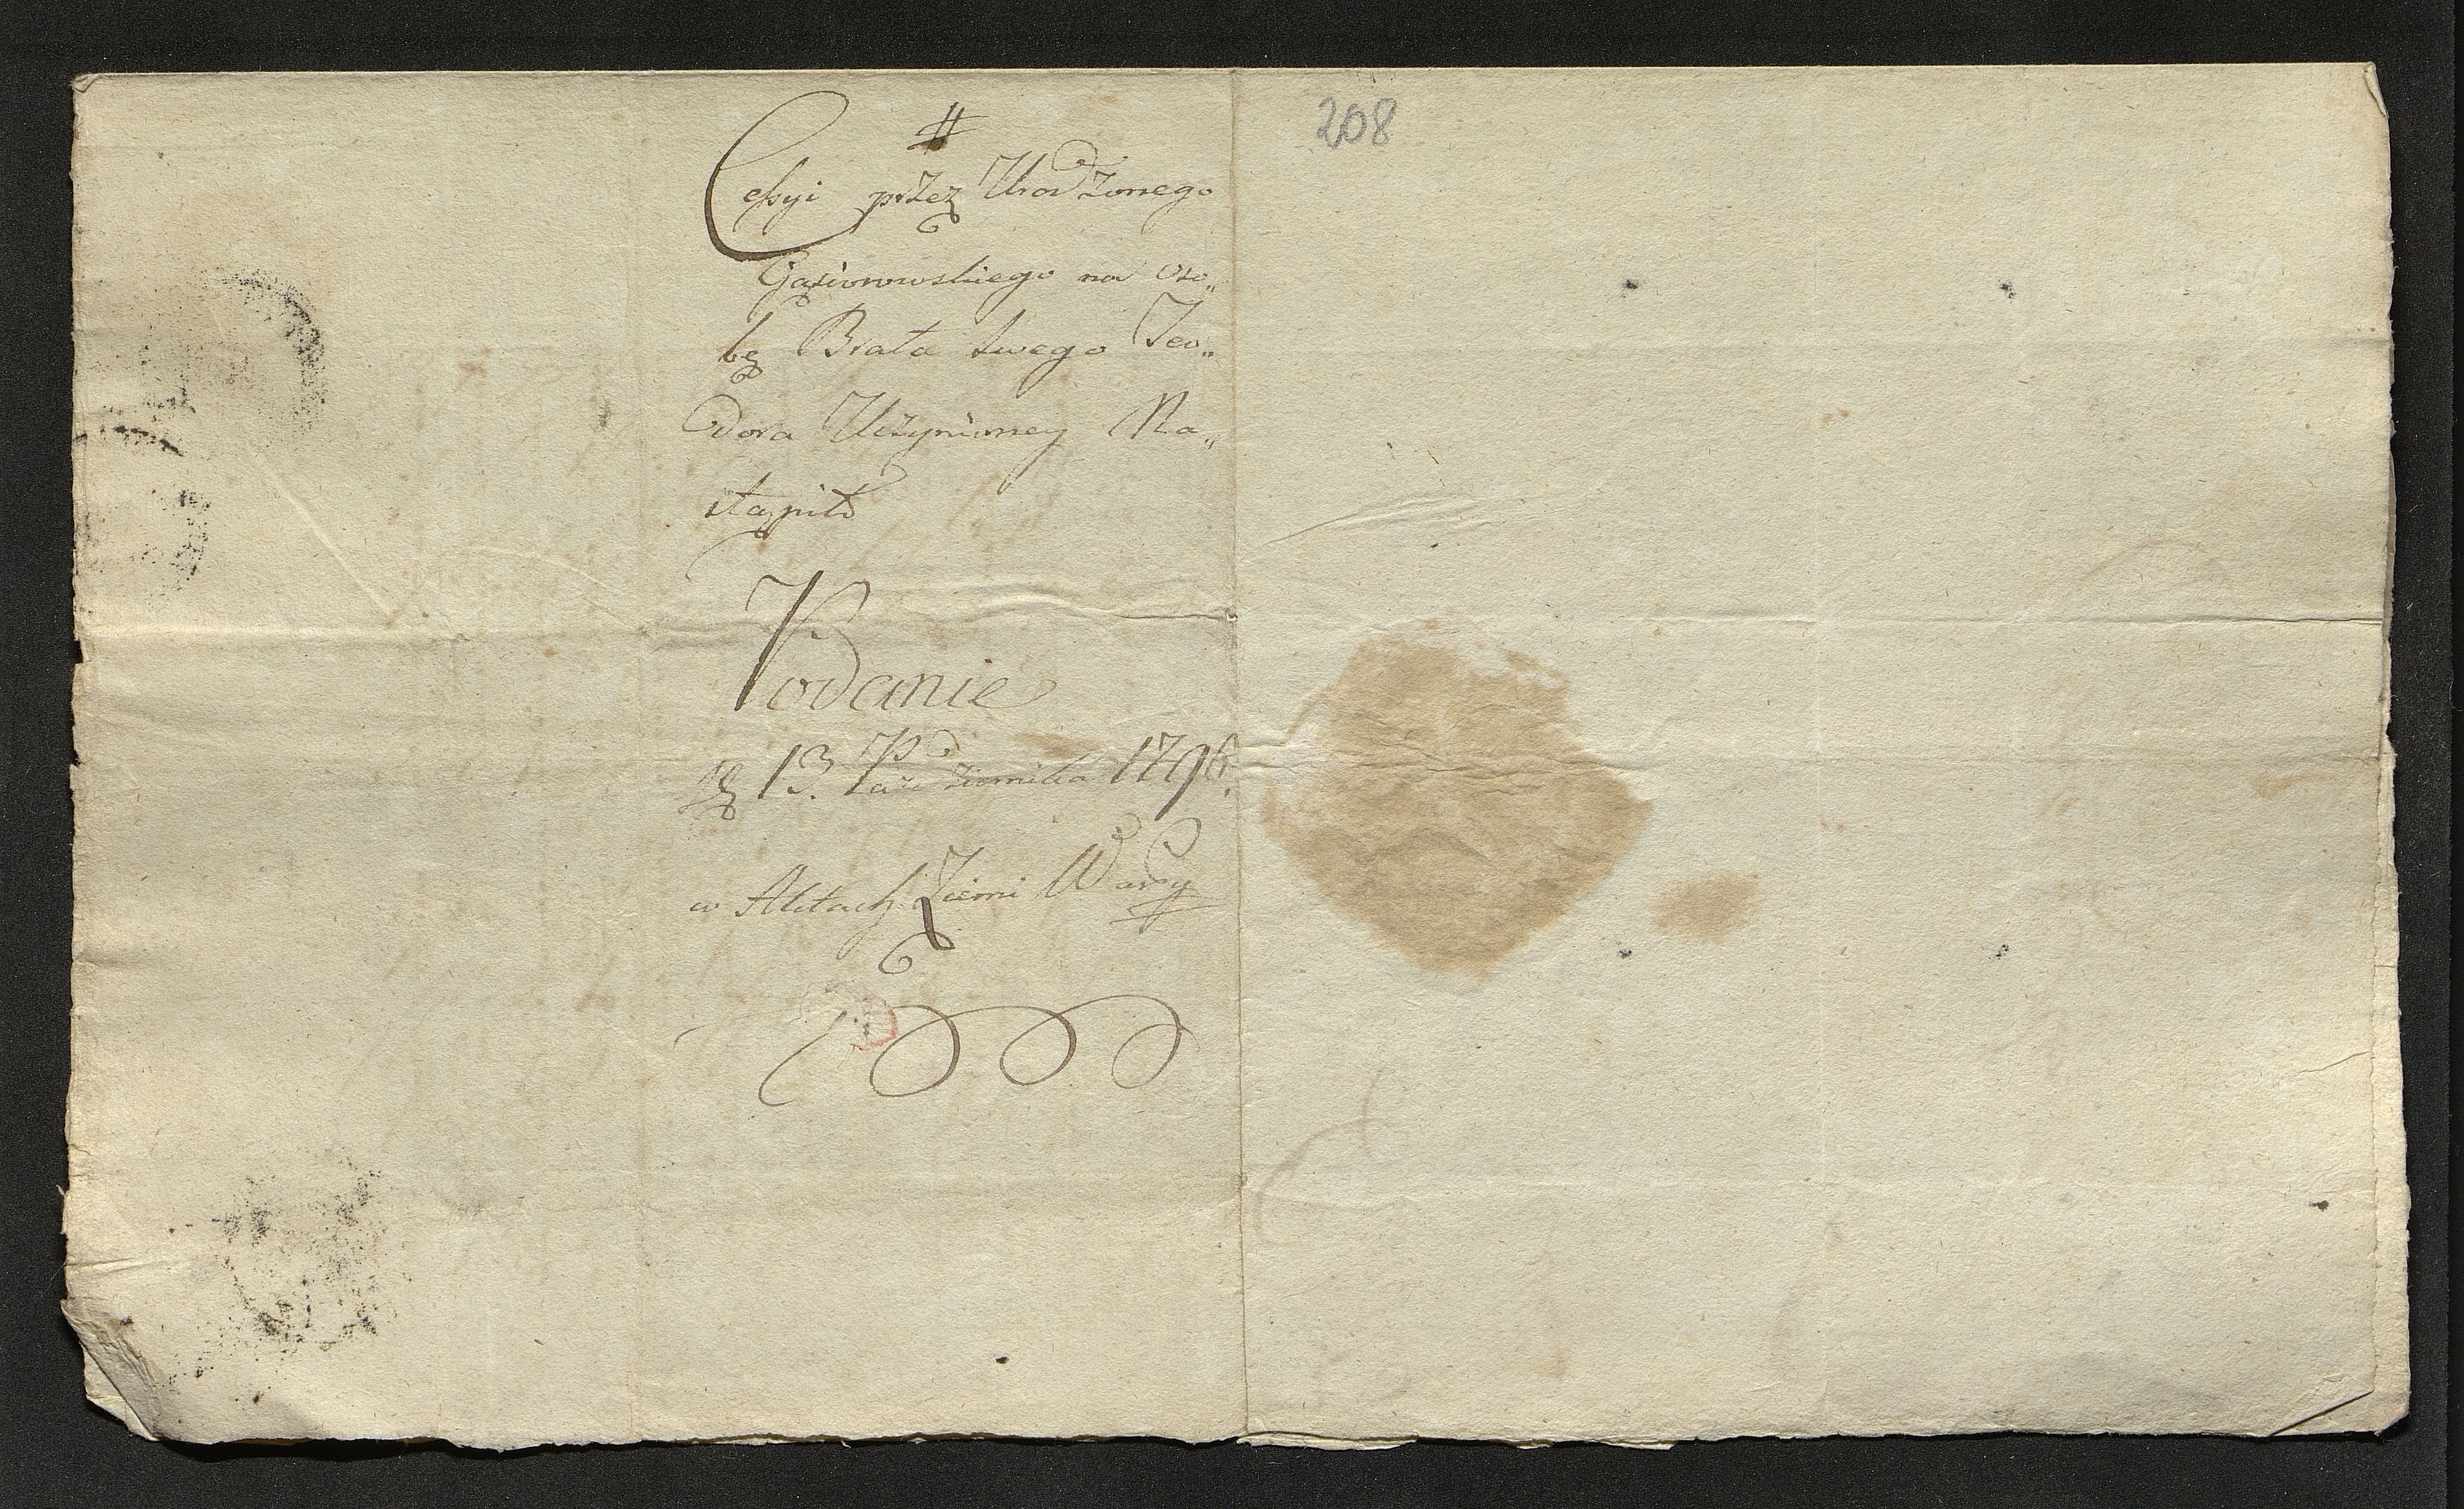 #
Cessyi przez Urodzonego
Gąsiorowskiego na oso„
bę Brata swego Teo„
dora Uczynioney Na„
stąpiło
Podanie
13. Paździemika 1796.
w Aktach Ziemi Warsz
208